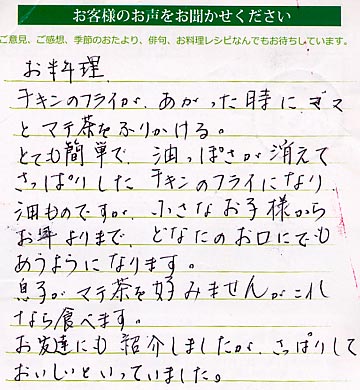 お客様のお声をお聞かせください
ご意見、ご感想、季節のおたより、俳句、お料理レシピなんでもお待ちしています。
お料理
チキンのフライが、あがった時にゴマ
とマテ茶をふりかける。
とても簡単で、油っぽさが消えて
さっぱりしたチキンのフライになり
油ものですが、小さなお子様から
お年よりまで、どなたのお口にでも
あうようになります。
息子がマテ茶を好みませんがこれ
なら食べます。
お友達にも紹介しましたが、さっぱりして
おいしいといっていました。